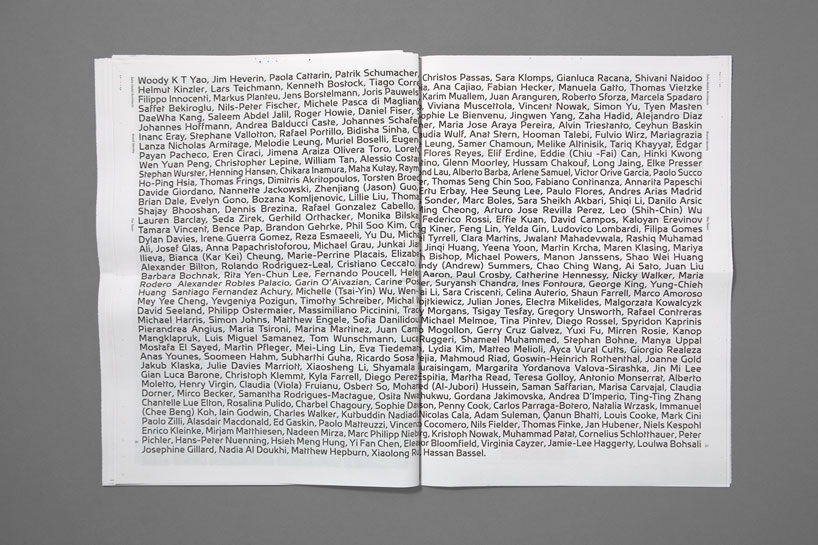 Woody K T Yao, Jim Heverin, Paola Cattarin, Patrik Schumacher, Christos Passas, Sara Klomps, Gianluca Racana, Shivani Naidoo
Helmut Kinzler, Lars Teichmann, Kenneth Bostock, Tiago Correia, Ana Cajiao, Fabian Hecker, Manuela Gatto, Thomas Vietzke
Filippo Innocenti, Markus Planteu, Jens Borstelmann, Joris Pauwels, Karim Muallem, Juan Aranguren, Roberto Sforza, Marcela Spadaro
Saffet Bekiroglu, Nils-Peter Fischer, Michele Pasca di Magliano, Viviana Muscettola, Vincent Nowak, Simon Yu, Tyen Masten
DaeWha Kang, Saleem Abdel Jalil, Roger Howie, Daniel Fiser, Sophie Le Bienvenu, Jingwen Yang, Zaha Hadid, Alejandro Diaz
Johannes Hoffmann, Andrea Balducci Caste, Johannes Schafelner, Maria Jose Araya Pereira, Alvin Triestanto, Ceyhun Baskin
Inanc Eray, Stephane Vallotton, Rafael Portillo, Bidisha Sinha, Claudia Wulf, Anat Stern, Hooman Talebi, Fulvio Wirz, Mariagrazia
Lanza Nicholas Armitage, Melodie Leung, Muriel Boselli, Eugene Leung, Samer Chamoun, Melike Altinisik, Tariq Khayyat, Edgar
Payan Pacheco, Eren Ciraci, Jimena Araiza Olivera Toro, Loreto Flores Reyes, Elif Erdine, Eddie (Chiu -Fai) Can, Hinki Kwong
Wen Yuan Peng, Christopher Lepine, William Tan, Alessio Costantino, Glenn Moorley, Hussam Chakouf, Long Jaing, Elke Presser
Stephan Wurster, Henning Hansen, Chikara Inamura, Maha Kutay, Raymond Lau, Alberto Barba, Arlene Samuel, Victor Orive Garcia, Paolo Succo
Ho-Ping Hsia, Thomas Frings, Dimitris Akritopoulos, Torsten Broeder, Thomas Seng Chin Soo, Fabiano Continanza, Annarita Papeschi
Davide Giordano, Nannette Jackowski, Zhenjiang (Jason) Guo, Ertu Erbay, Hee Seung Lee, Paulo Flores, Andres Arias Madrid
Brian Dale, Evelyn Gono, Bozana Komljenovic, Lillie Liu, Sonder, Marc Boles, Sara Sheikh Akbari, Shiqi Li, Danilo Arsic
Shajay Bhooshan, Dennis Brezina, Rafael Gonzalez Cabello, Ming Cheong, Arturo Jose Revilla Perez, Leo (Shih-Chin) Wu
Lauren Barclay, Seda Zirek, Gerhild Orthacker, Monika Bilska, Federico Rossi, Effie Kuan, David Campos, Kaloyan Erevinov
Tamara Vincent, Bence Pap, Brandon Gehrke, Phil Soo Kim, Craig Kiner, Feng Lin, Yelda Gin, Ludovico Lombardi, Filipa Gomes
Dylan Davies, Irene Guerra Gomez, Reza Esmaeeli, Yu Du, Michael Tyrrell, Clara Martins, Jwalant Mahadevwala, Rashiq Muhamad
Ali, Josef Glas, Anna Papachristoforou, Michael Grau, Junkai Jian, Jinqi Huang, Yeena Yoon, Martin Krcha, Maren Klasing, Mariya
Ilieva, Bianca (Kar Kei) Cheung, Marie-Perrine Placais, Elizabeth Bishop, Michael Powers, Manon Janssens, Shao Wei Huang
Alexander Bilton, Rolando Rodriguez-Leal, Cristiano Ceccato, Andy (Andrew) Summers, Chao Ching Wang, Ai Sato, Juan Liu
Barbara Bochnak, Rita Yen-Chun Lee, Fernando Poucell, Helen Aaron, Paul Crosby, Catherine Hennessy, Nicky Walker, Maria
Rodero Alexander Robles Palacio, Garin O'Aivazian, Carine Posner, Suryansh Chandra, Ines Fontoura, George King, Yung-Chieh
Huang Santiago Fernandez Achury, Michelle (Tsai-Yin) Wu, Wen-ai Li, Sara Criscenti, Celina Auterio, Shaun Farrell, Marco Amoroso
Mey Yee Cheng, Yevgeniya Pozigun, Timothy Schreiber, Michal Wojtkiewicz, Julian Jones, Electra Mikelides, Malgorzata Kowalczyk
David Seeland, Philipp Ostermaier, Massimiliano Piccinini, Tracy Morgans, Tsigay Tesfay, Gregory Unsworth, Rafael Contreras
Michael Harris, Simon Johns, Matthew Engele, Sofia Daniilidou, Michael Melmoe, Tina Pintev, Diego Rossel, Spyridon Kaprinis
Pierandrea Angius, Maria Tsironi, Marina Martinez, Juan Camilo Mogollon, Gerry Cruz Galvez, Yuxi Fu, Mirren Rosie, Kanop
Mangklapruk, Luis Miguel Samanez, Tom Wunschmann, Luca Ruggeri, Shameel Muhammed, Stephan Bohne, Manya Uppal
Mostafa El Sayed, Martin Pfleger, Mei-Ling Lin, Eva Tiedemann, Lydia Kim, Matteo Melioli, Ayca Vural Cults, Giorgio Realeza
Anas Younes, Soomeen Hahm, Subharthi Guha, Ricardo Sosa Mejia, Mahmoud Riad, Goswin-Heinrich Rothenthal, Joanne Gold
Jakub Klaska, Julie Davies Marriott, Xiaosheng Li, Shyamala Duraisingam, Margarita Yordanova Valova-Sirashka, Jin Mi Lee
Gian Luca Barone, Christoph Klemmt, Kyla Farrell, Diego Perez-Espitia, Martha Read, Teresa Golloy, Antonio Monserrat, Alberto
Moletto, Henry Virgin, Claudia (Viola) Fruianu, Osbert So, Mohamed (Al-Jubori) Hussein, Saman Saffarian, Marisa Carvajal, Claudia
Dorner, Mirco Becker, Samantha Rodrigues-Mactague, Osita Nwachukwu, Gordana Jakimovska, Andrea D'Imperio, Ting-Ting Zhang
Chantelle Lue Elton, Rosalina Pulido, Charbel Chagoury, Sophie Davison, Penny Cook, Carlos Parraga-Botero, Natalia Wrzask, Immanuel
(Chee Beng) Koh, Iain Godwin, Charles Walker, Kutbuddin Nadiadi, Nicolas Cala, Adam Suleman, Qanun Bhatti, Louis Cooke, Mark Cini
Paolo Zilli, Alasdair Macdonald, Ed Gaskin, Paolo Matteuzzi, Vincenzo Cocomero, Nils Fielder, Thomas Finke, Jan Hubener, Niels Kespohl
Enrico Kleinke, Mirjam Matthiesen, Nadeen Mirza, Marc Philipp Nieberg, Kristoph Nowak, Muhammad Patat, Cornelius Schlotthauer, Peter
Pichler, Hans-Peter Nuenning, Hsieh Meng Hung, Yi Fan Chen, Eleanor Bloomfield, Virginia Cayzer, Jamie-Lee Haggerty, Loulwa Bohsali
Josephine Gillard, Nadia Al Doukhi, Matthew Hepburn, Xiaolong Ru, Hassan Bassel.